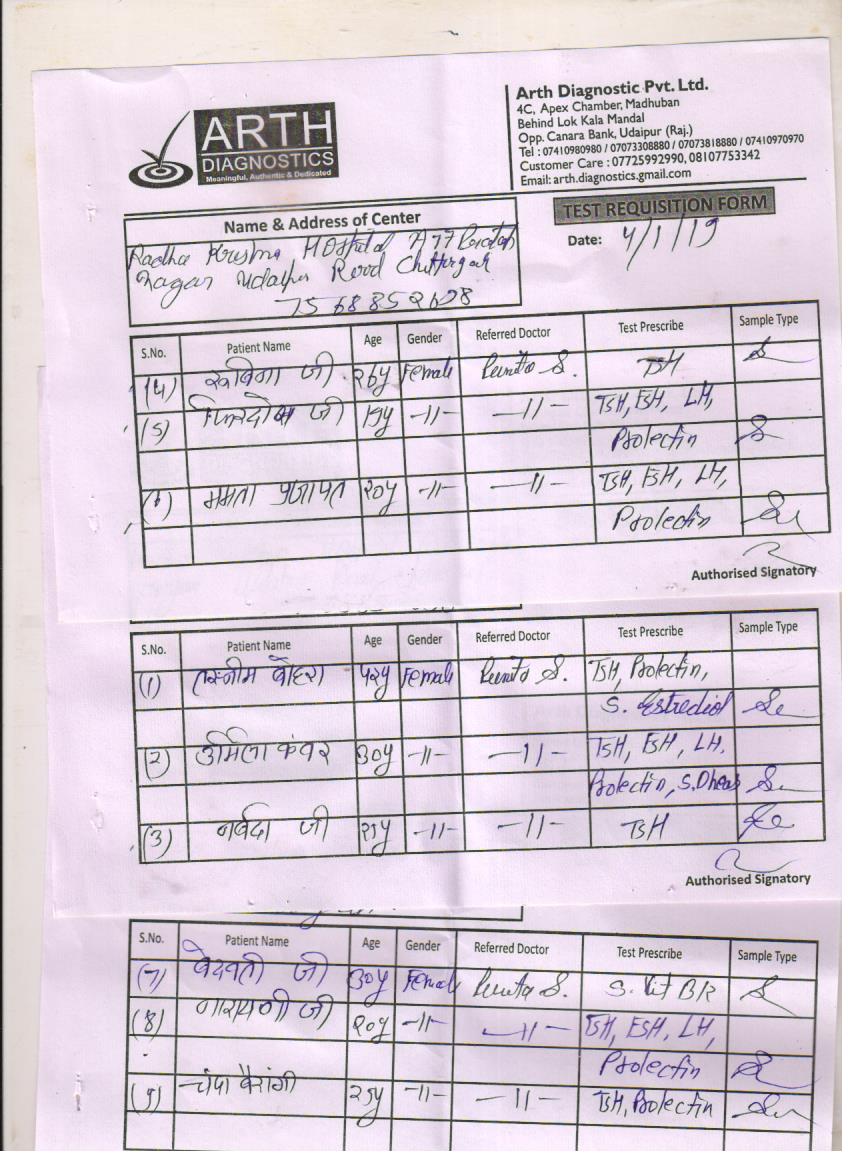 ARTH
DIAGNOSTICS
Meaningful, Authentic & Dedicated
Arth Diagnostic Pvt. Ltd.
4C, Apex Chamber, Madhuban
Behind Lok Kala Mandal
Opp. Canara Bank, Udaipur (Raj.)
Tel : 07410980980 / 07073308880 / 07073818880 / 07410970970
Customer Care : 07725992990, 08107753342
Email: arth.diagnostics.gmail.com
TEST REQUISITION FORM
Date: 4/1/19
Name & Address of Center
Radha Krishna Hospital
Nagar Udaipur Road Chittorgarh
S.No. Patient Name Age Gender Referred Doctor Test Prescribe Sample Type
(4) रुबिना जी 26y Female Punita S. TSH S
(5) जी 19y -11- -11- TSH, FSH, LH,
Prolectin S
(6) ममता प्रजापत 20y -11- -11- TSH, FSH, LH,
Prolectin
Authorised Signatory
S.No. Patient Name Age Gender Referred Doctor Test Prescribe Sample Type
(1) तस्नीम बोहरा 42y Female Punita S. TSH, Prolectin,
S. Estrediol Se
(2) उर्मिला कंवर 30y -11- -11- TSH, FSH, LH.
Prolectin, S.Dheas S
(3) नर्बदा जी 21y -11- -11- TSH Se
Authorised Signatory
S.No. Patient Name Age Gender Referred Doctor Test Prescribe Sample Type
(7) वेदवती जी 30y Female Punita S. S. Vit B12 S
(8) नारायणी जी 20y -11- -11- TSH, FSH, LH,
Prolectin S
(9) चंपा बैरागी 25y -11- -11- TSH, Prolectin Se